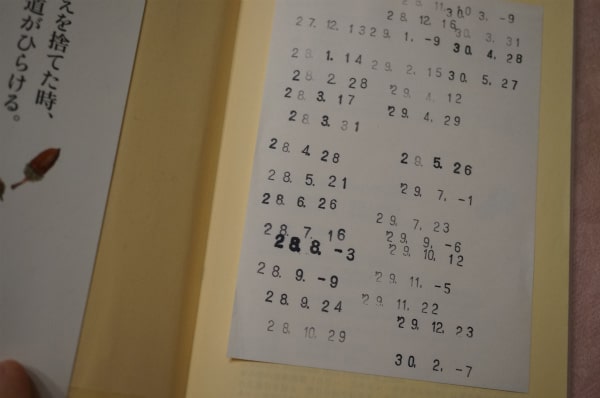 えを捨てた時、
道がひらける。
28. 11. 10
27. 12. 13
28. 1. 14
28. 2. 28
28. 3. 17
28. 3. 31
28. 4. 28
28. 5. 21
28. 6. 26
28. 7. 16
28. 8. -3
28. 9. -9
28. 9. 24
28. 10. 29
28. 12. 16
29. 1. -9
29. 2. 15
'29. 4. 12
'29. 4. 29
29. 5. 26
'29. 7. -1
'29. 7. 23
'29. 9. -6
'29. 10. 12
'29. 11. -5
'29. 11. 22
'29. 12. 23
30. 2. -7
30. 3. -9
30. 3. 31
30. 4. 28
30. 5. 27